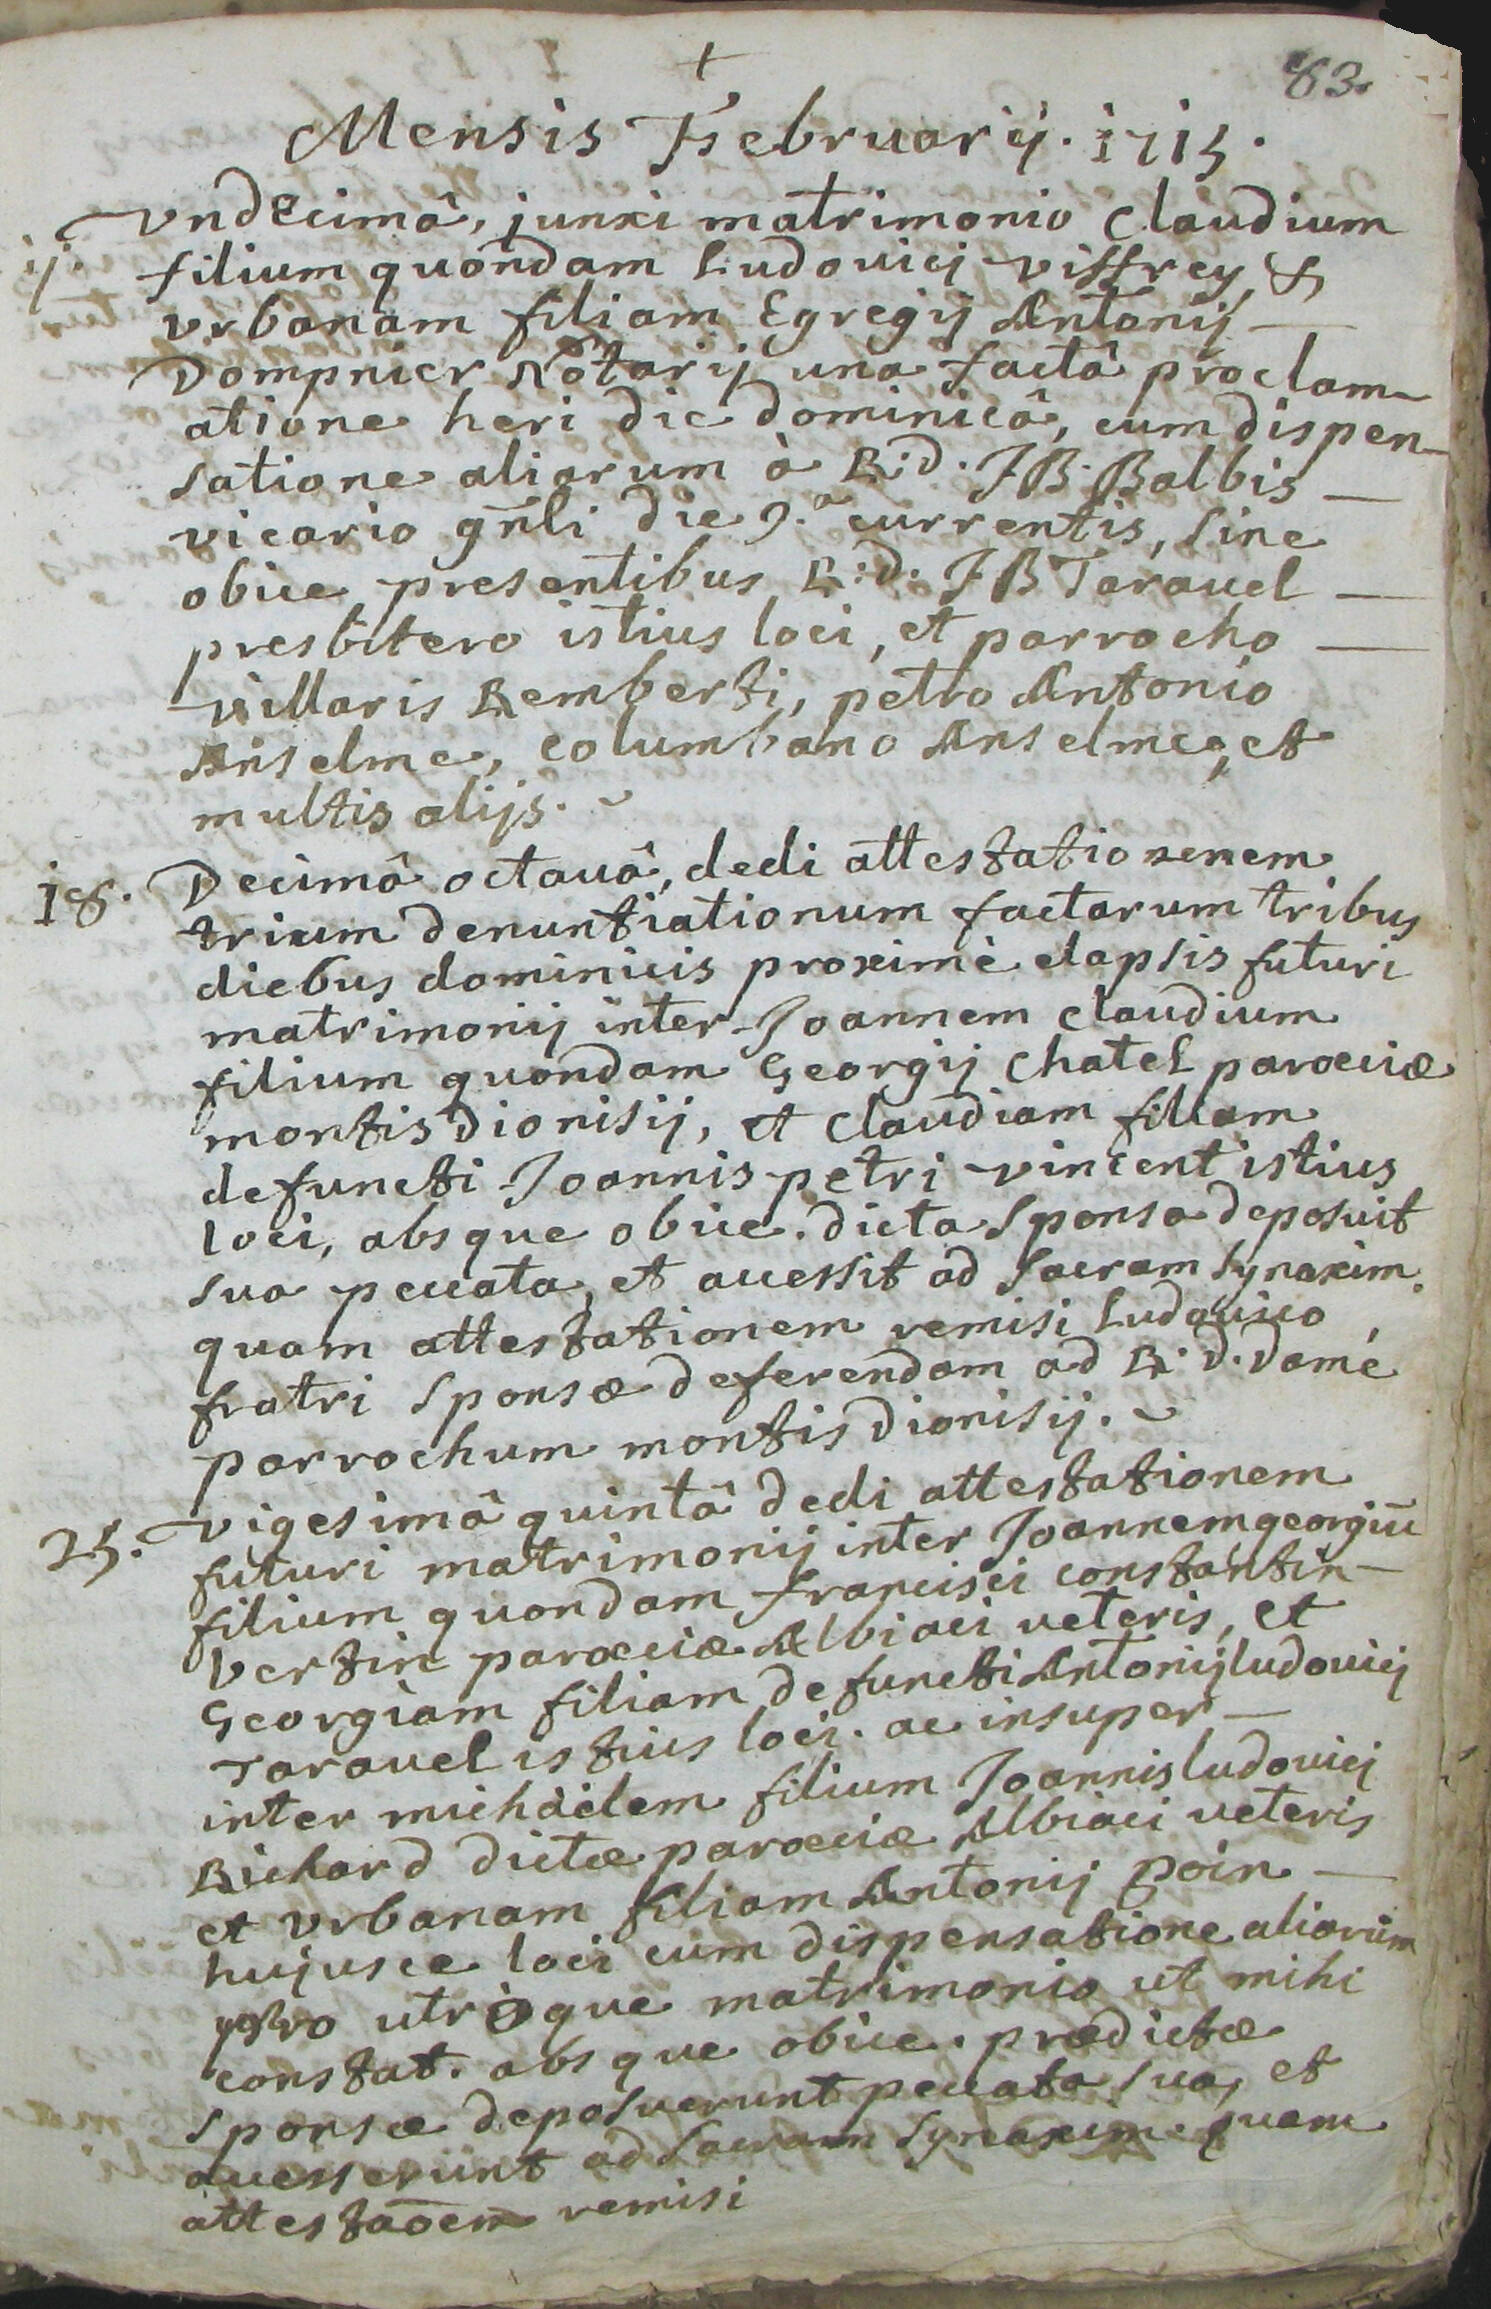 +
83.
Mensis Februarij. 1715.
11. Vndecimâ, junxi matrimonio Claudium
filium quondam Ludovicj Viffrey, &
Vrbanam filiam Egregij Antonij —
Dompnier Notarij una factâ proclam-
atione heri die dominicâ, cum dispen-
satione aliarum à R:d. JB. Balbis —
vicario gn̄li die 9.ª currentis, sine
obice presentibus R:d. JB Taravel —
presbitero istius loci, et parrocho —
Villaris Remberti, petro Antonio
Anselme, Columbano Anselme, et
multis alijs.
18. Decimâ octavâ, dedi attestationenem
trium denuntiationum factarum tribus
diebus dominicis proximè elapsis futuri
matrimonij inter Joannem Claudium
filium quondam Georgij Chatel parœciæ
montis Dionisij, et Claudiam filiam
defuncti Joannis petri Vincent istius
loci, absque obice. dicta sponsa deposuit
sua peccata, et accessit ad sacram synaxim.
quam attestationem remisi Ludovico
fratri sponsæ deferendam ad R. D. Damé
parrochum montis Dionisij.
25. Vigesimâ quintâ dedi attestationem
futuri matrimonij inter Joannem georgiū
filium quondam francisci Constantin —
Vertin parœciæ Albiaci veteris, et
Georgiam filiam defuncti Antonij ludovicj
Taravel istius loci. ac insuper —
inter michäelem filium Joannis ludovicj
Richard dictæ parœciæ Albiaci veteris
et Vrbanam filiam Antonij poin —
hujusce loci cum dispensatione aliarum
pro utroque matrimonio ut mihi
constat. absque obice. prædictæ
sponsæ deposuerunt peccata sua, et
accesserunt ad sacram synaxim. quam
attestaōem remisi